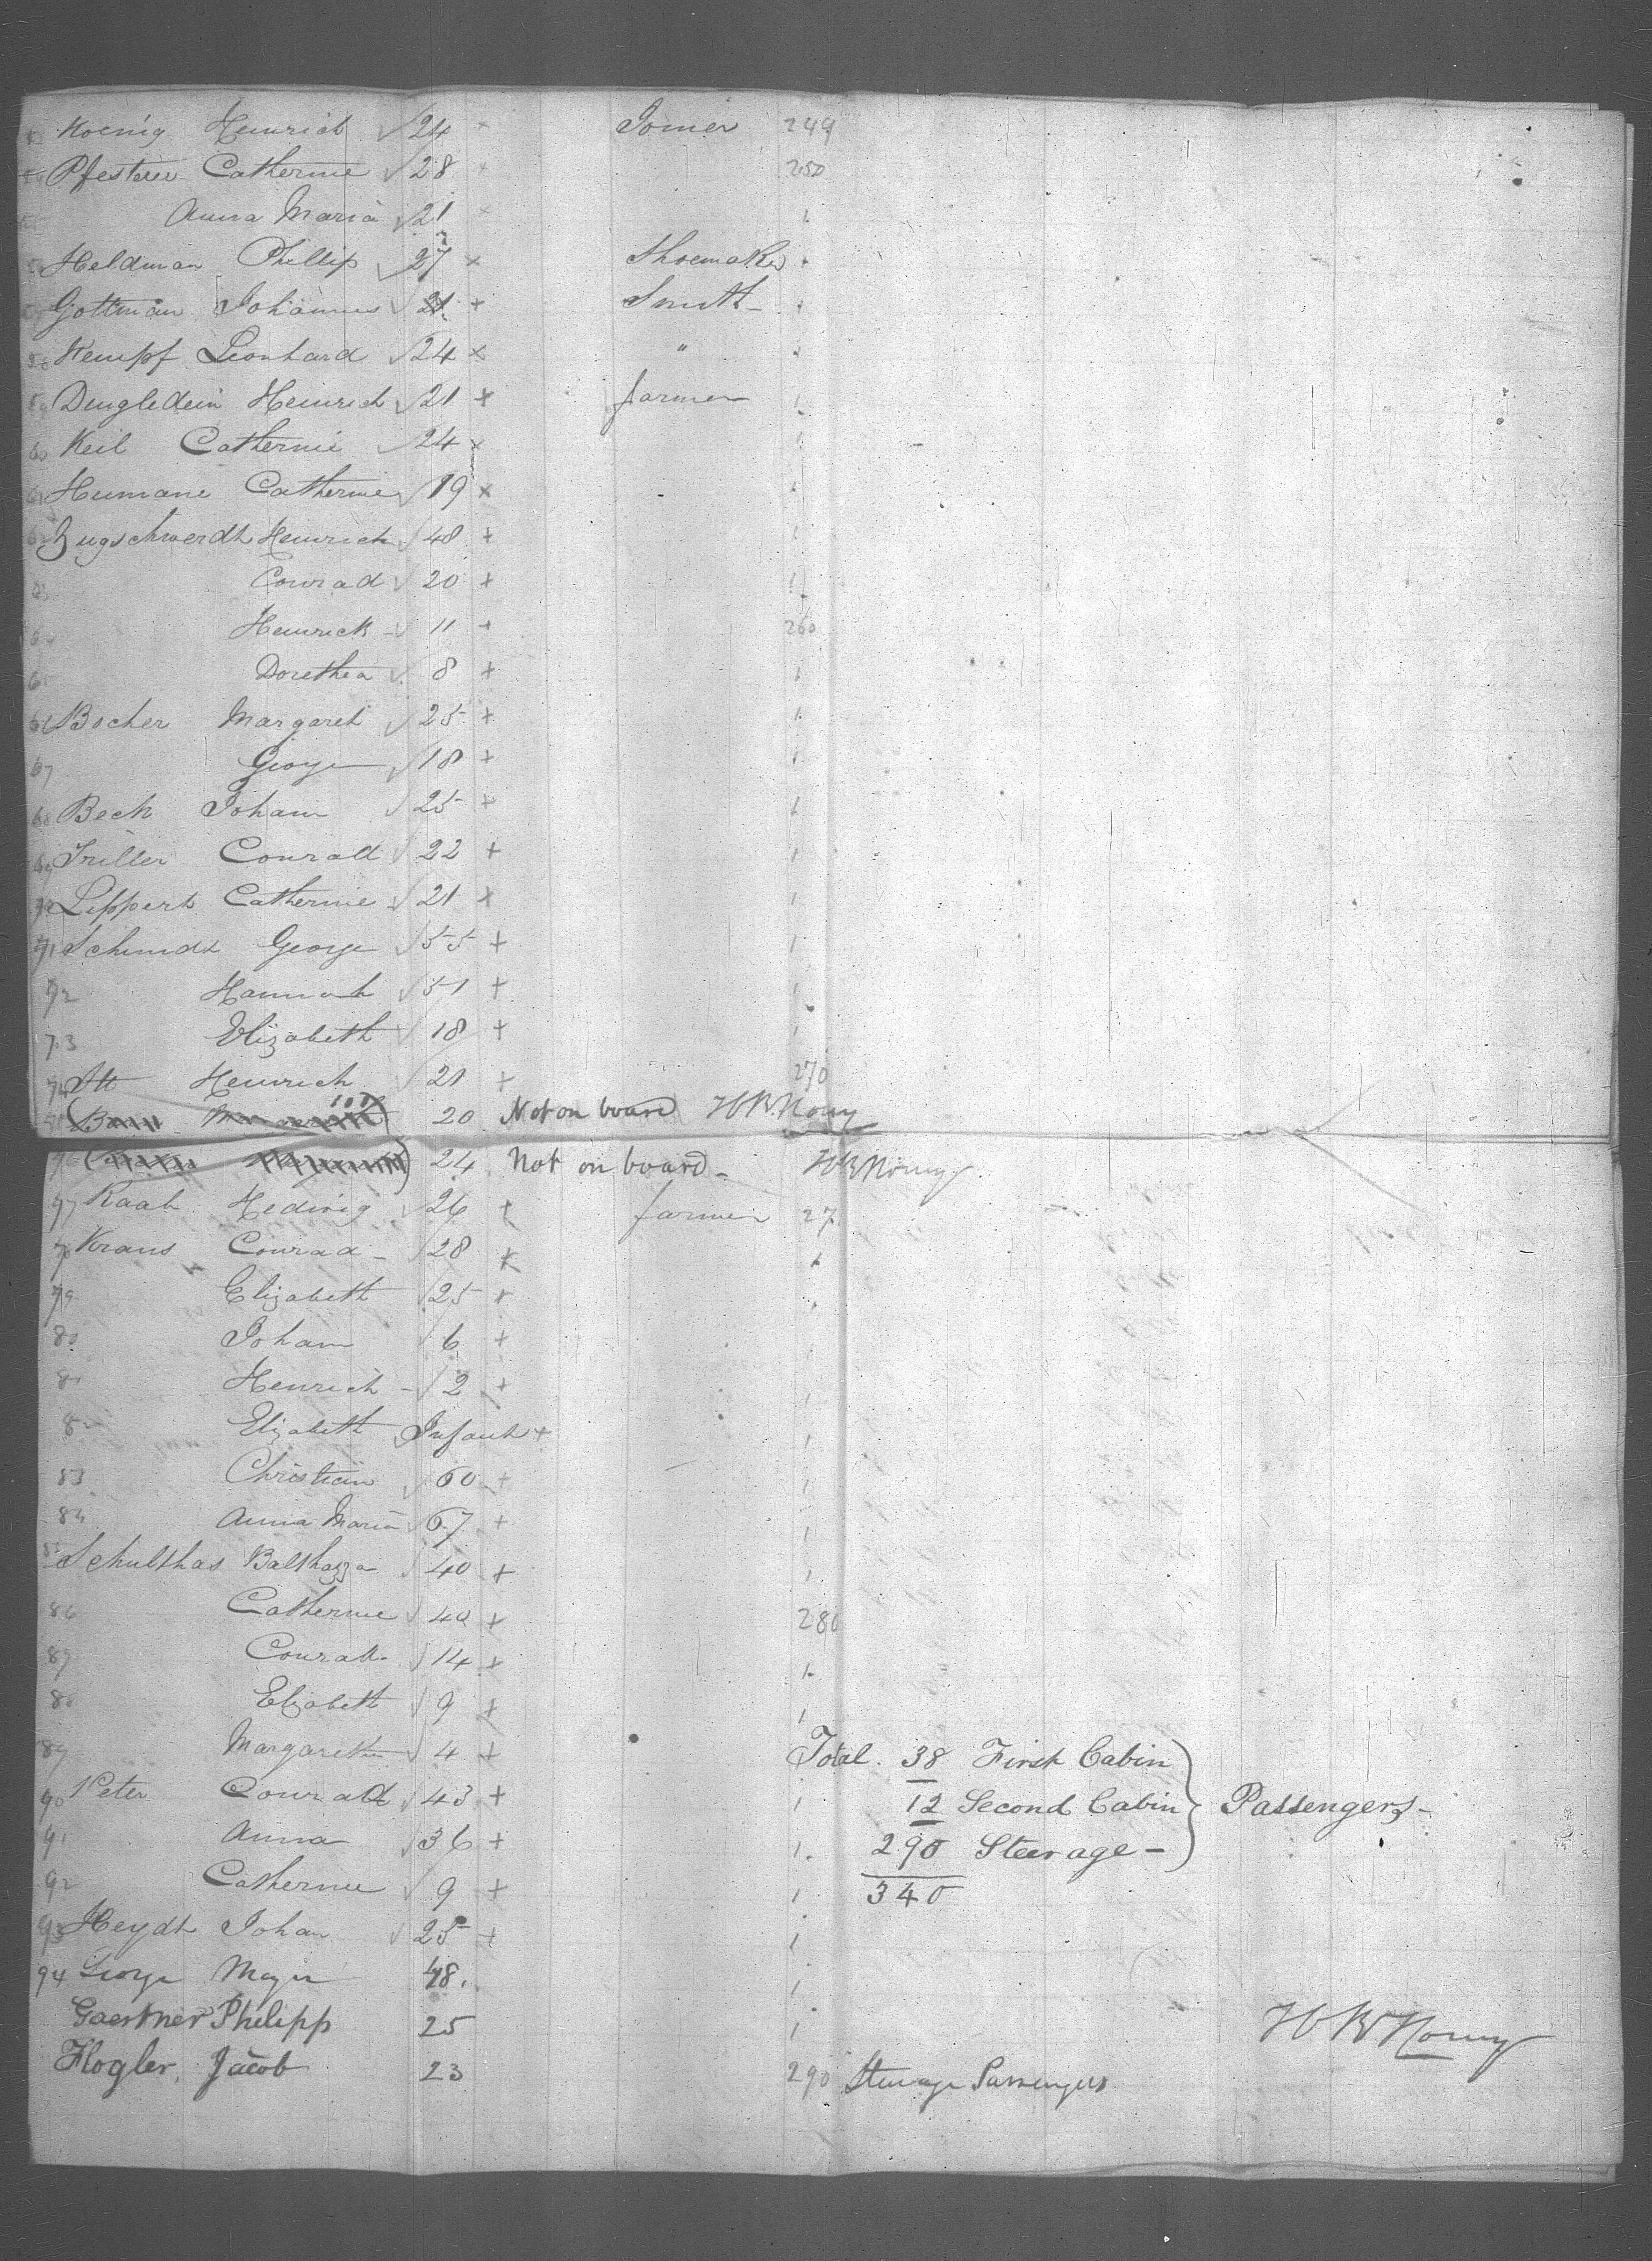 Koenig Heinrich 24 x Joiner 249
Pfesterer Catherine 28 x 250
Anna Maria 21 x
Heldman Phillip 27 x Shoemaker
Gottman Johannes 21 + Smith
58 Kempf Leonhard 24 x "
59 Dingledein Heinrich 21 x farmer
60 Keil Catherine 24 x
61 Humane Catherine 19 x
62 Zugschwerdt Heinrich 48 +
63 Conrad 20 +
64 Heinrich 11 +
65 Dorethea 8 + 260
66 Bocher Margaret 25 +
67 George 18 +
68 Beck Johann 25 +
69 Triller Conrad 22 +
70 Lippert Catherine 21 x
71 Schmidt George 55 +
72 Hannah 51 +
73 Elizabeth 18 +
74 Itt Heinrich 21 + 270
20 Not on board
76 24 Not on board
77 Raab Hedwig 26 + farmer 27
78 Krans Conrad 28 x
79 Elizabeth 25 x
80 Johann 6 +
81 Henrich 2 +
82 Elizabeth Infant +
83 Christian 60 +
84 Anna Maria 67 +
85 Schulthas Balthazza 40 +
86 Catherine 40 + 280
87 Conrad 14 +
88 Elizabeth 9 +
89 Margarethe 4 + Total 38 First Cabin
90 Peter Conrad 43 + 12 Second Cabin Passengers
91 Anna 36 + 290 Steerage
92 Catherine 9 + 340
93 Heydt Johan 25 +
94 George Mayer 48
Gaertner Philipp 25
Flogler, Jacob 23 290 Steerage Passengers